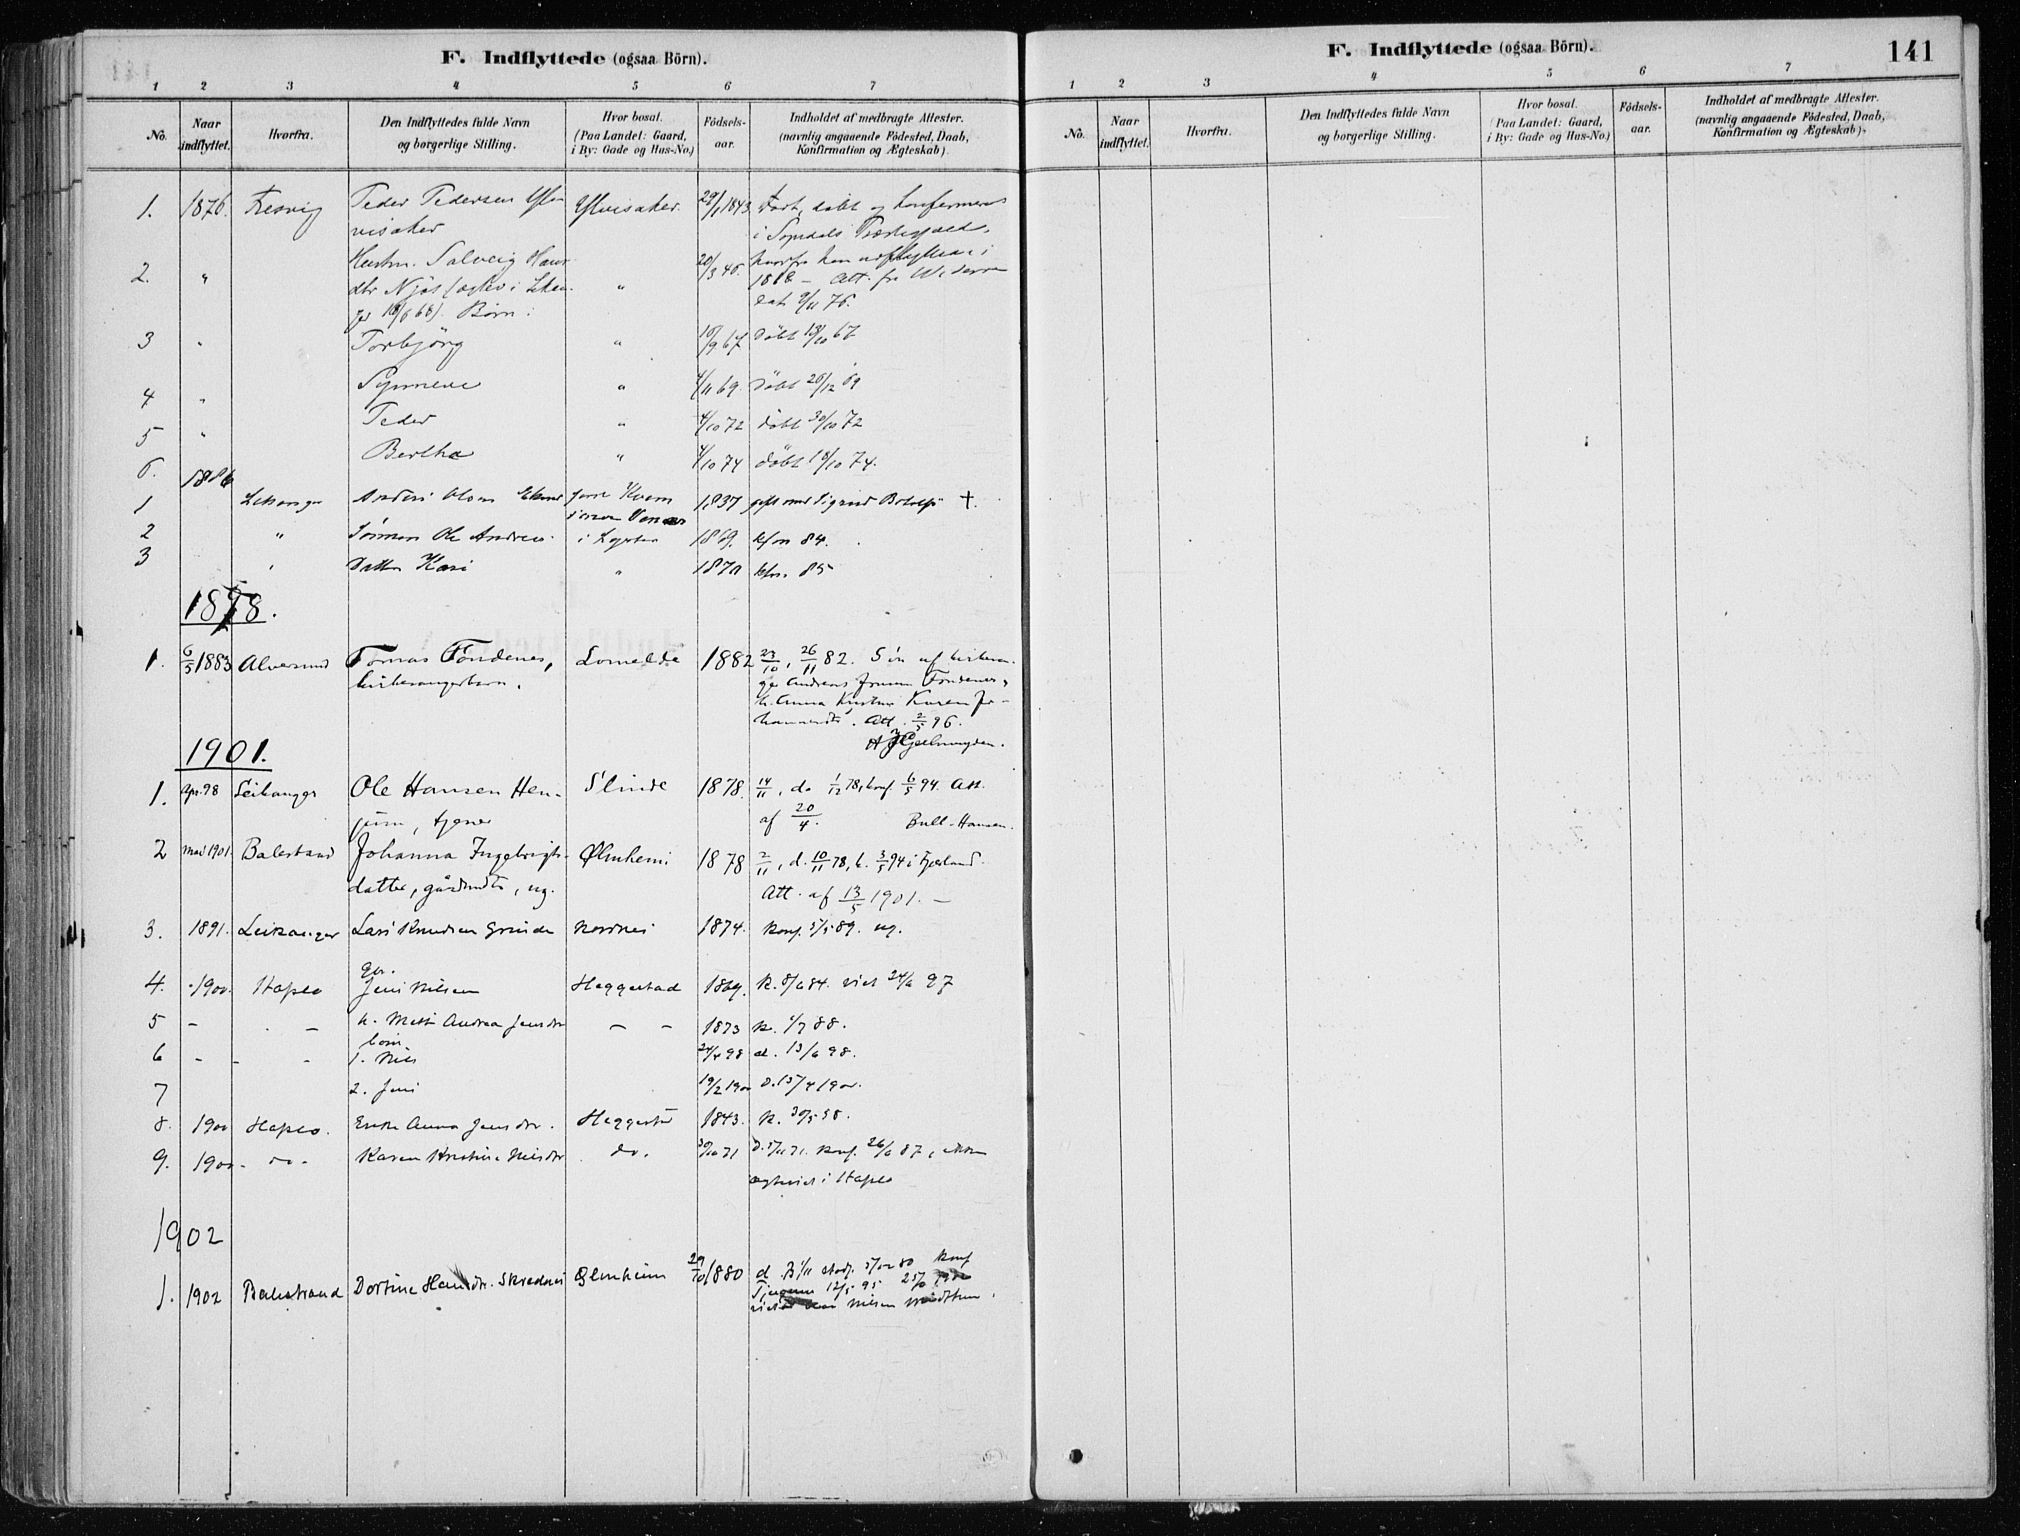 F. Indflyttede (ogsaa Börn).
1 2 3 4 5 6 7
No. Naar indflyttet. Hvorfra. Den Indflyttedes fulde Navn og borgerlige Stilling. Hvor bosat. (Paa Landet: Gaard, i By: Gade og Hus-No.) Födsels-aar. Indholdet af medbragte Attester. (navnlig angaaende Födested, Daab, Konfirmation og Ægteskab).
1. 1876. Peder Pedersen Ylvisaker Ylvisaker 29/1 1843 født, døbt og konfirmeret
i Sogndals Præstegjeld,
2. " Hustru Solveig 20/3 46. hvorfra han udflyttede i
dtr Njøs " Att. fra
Børn: dat. 9/11 76.
3 " Torbjörg " 10/9 67 døbt 13/10 67
4 " Synneve " 4/11 69. døbt 26/12 69
5 " Peder " 4/10 72 døbt 30/10 72
6. " Bertha " 4/10 74 døbt 18/10 74.
1886
1 Lekanger Anders Olsen 1837 gift med Sigrid †.
2 " Sønnen Ole Andersen 1869. kfm 84.
3 " Datter Kari " 1870 kfm. 85
1898.
1. 6/5 1883 Alversund Tomas Töndenes, Lomelde 1882 23/10, 26/11 82. Sön af kirkesan-
kirkesangerbarn. ger Andreas Tondenes,
h. Anna Kristine Karen Jo-
hannesdtr. Att. 2/5 96.
1901.
1. Apr. 98 Leikanger Ole Hansen Hen- Slinde 1878. 14/11, d. 1/12 78, konf. 6/5 94. Att.
jum, tjener af 20/4. Bull-Hansen.
2 Mai 1901. Balestrand Johanna Ingebrigts- Ølmheim 1878 2/11, d. 10/11 78, k. 3/5 94 i Fjærland.
datter, gårdmdtr, ug. Att. af 13/5 1901. –
3. 1891. Leikanger Lars Knudsen Grinde Nornes 1874. Konf. 5/5 89. ug.
4. 1900. Hafslo gbr. Jens Nilsen Heggestad 1869. K. 8/6 84. viet 24/6 97
5 – – h. Mette Andrea Jensdtr – – 1873 K. 1/7 88.
börn
6 – – – 1. Nils 24/4 98 d. 13/6 98.
7 2. Jens 19/2 1900 d. 15/4 1900.
8. 1900 Hafslo. Enke Anna Jensdtr. Heggestad 1843. K. 30/5 58.
9. 1900 – do – Karen Kristine Nilsdtr do. 30/10 71 D. 5/11 71. Konf. 26/6 87,
i Hafslo
1902
1. 1902 Balestrand Dortine Hansdtr. Skrednes Ølmheim 29/10 1880 d. stadf. 80 Konf
12/5 95
viet Nilsen
F. Indflyttede (ogsaa Börn).
141
1 2 3 4 5 6 7
No. Naar indflyttet. Hvorfra. Den Indflyttedes fulde Navn og borgerlige Stilling. Hvor bosat. (Paa Landet: Gaard, i By: Gade og Hus-No.) Födsels-aar. Indholdet af medbragte Attester. (navnlig angaaende Födested, Daab, Konfirmation og Ægteskab).